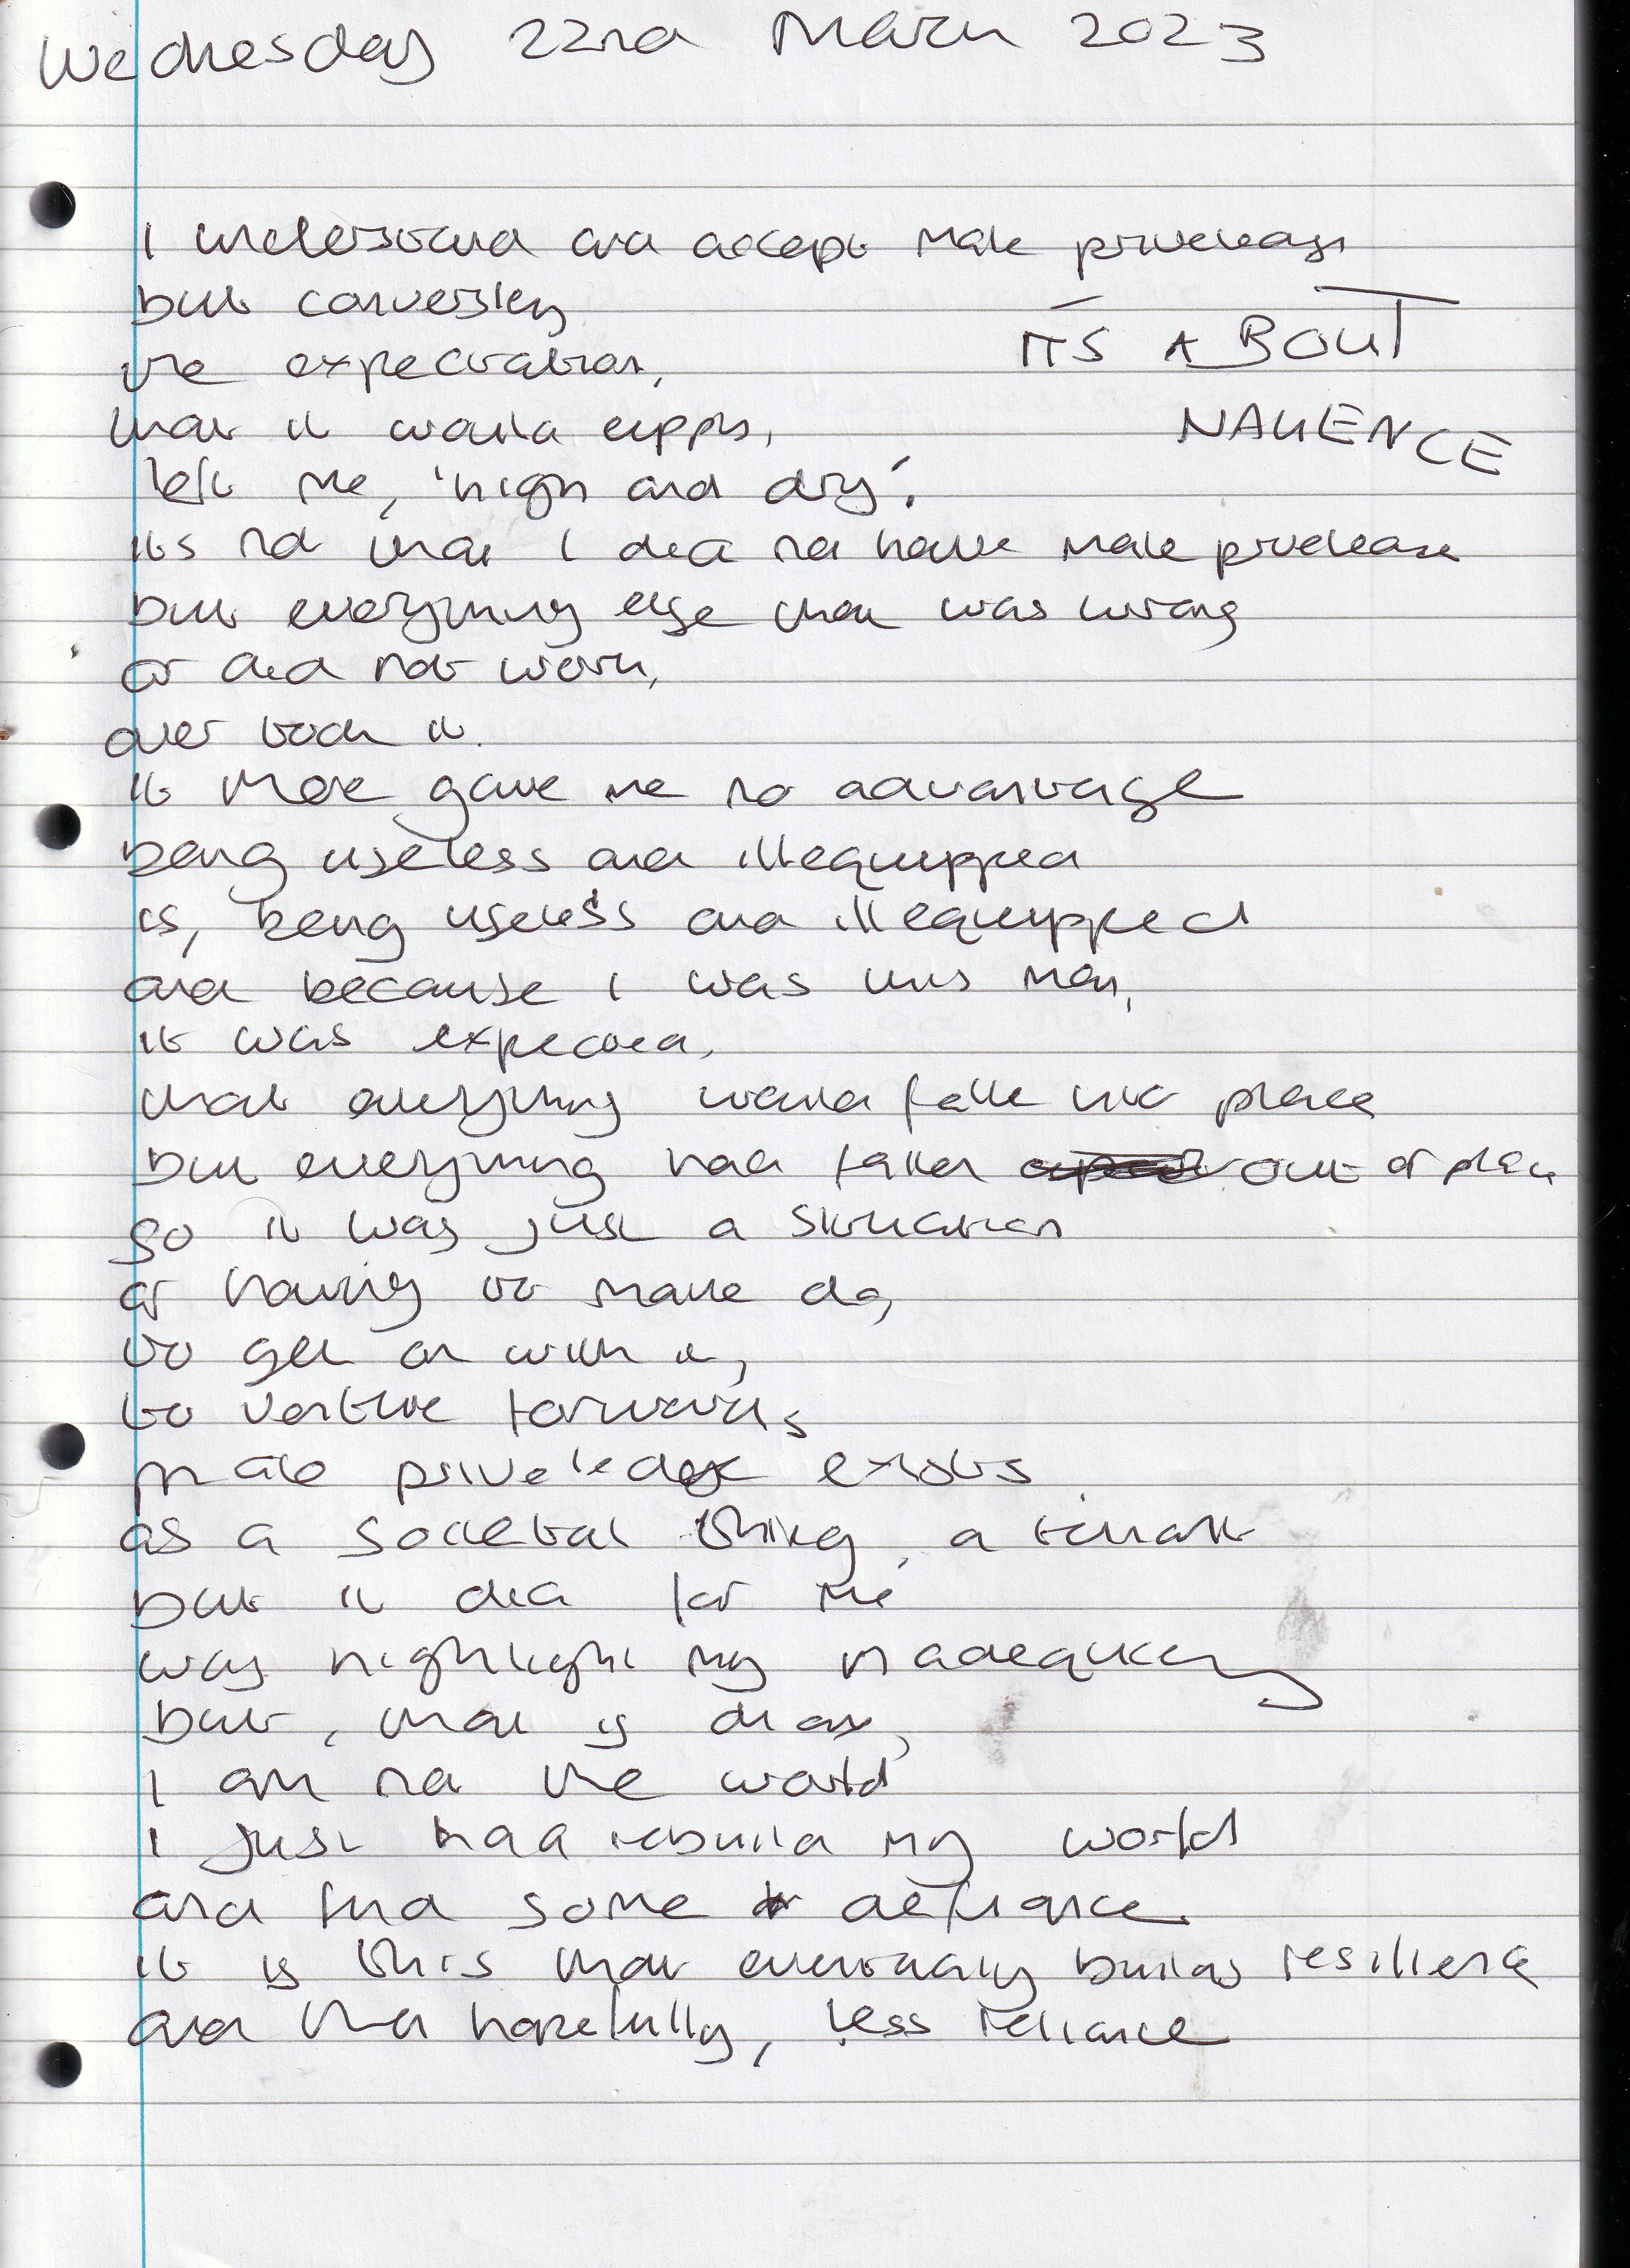 Wednesday 22nd March 2023
I understand and accept male priveleage
but conversley
the expectation,
ITS ABOUT
that it would apply,
NAUENCE
left me, 'high and dry'.
its not that I did not have male privelease
but everything else that was wrong
or did not work,
over took it.
it more gave me no advantage
being useless and illequipped
is, being useless and illequipped
and because I was this man,
it was expected,
that everything would falle into place
but everything had fallen out of place
so it was just a situation
of having to make do,
to get on with it,
to venture forwards
male priveledge exists
as a societal thing, a
but it did for me
way highlight my inadequecy
but, that is okay,
I am not the world
I just had rebuild my world
and find some defiance
it is this that eventually builds resilience
and then hopefully, less reliance